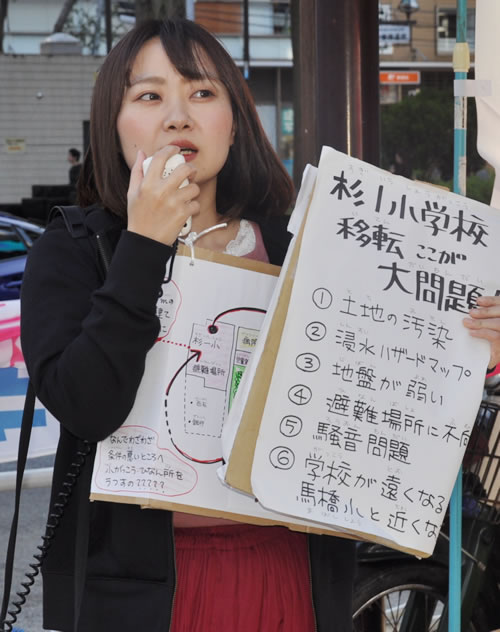 杉一小学校
移転 ここが
大問題!
① 土地の汚染
② 浸水ハザードマップ
③ 地盤が弱い
④ 避難場所に不
⑤ 騒音問題
⑥ 学校が遠くなる
馬橋小と近くな
杉一小
避難場所
なんでわざわざ
条件の悪いところへ
うつすの????